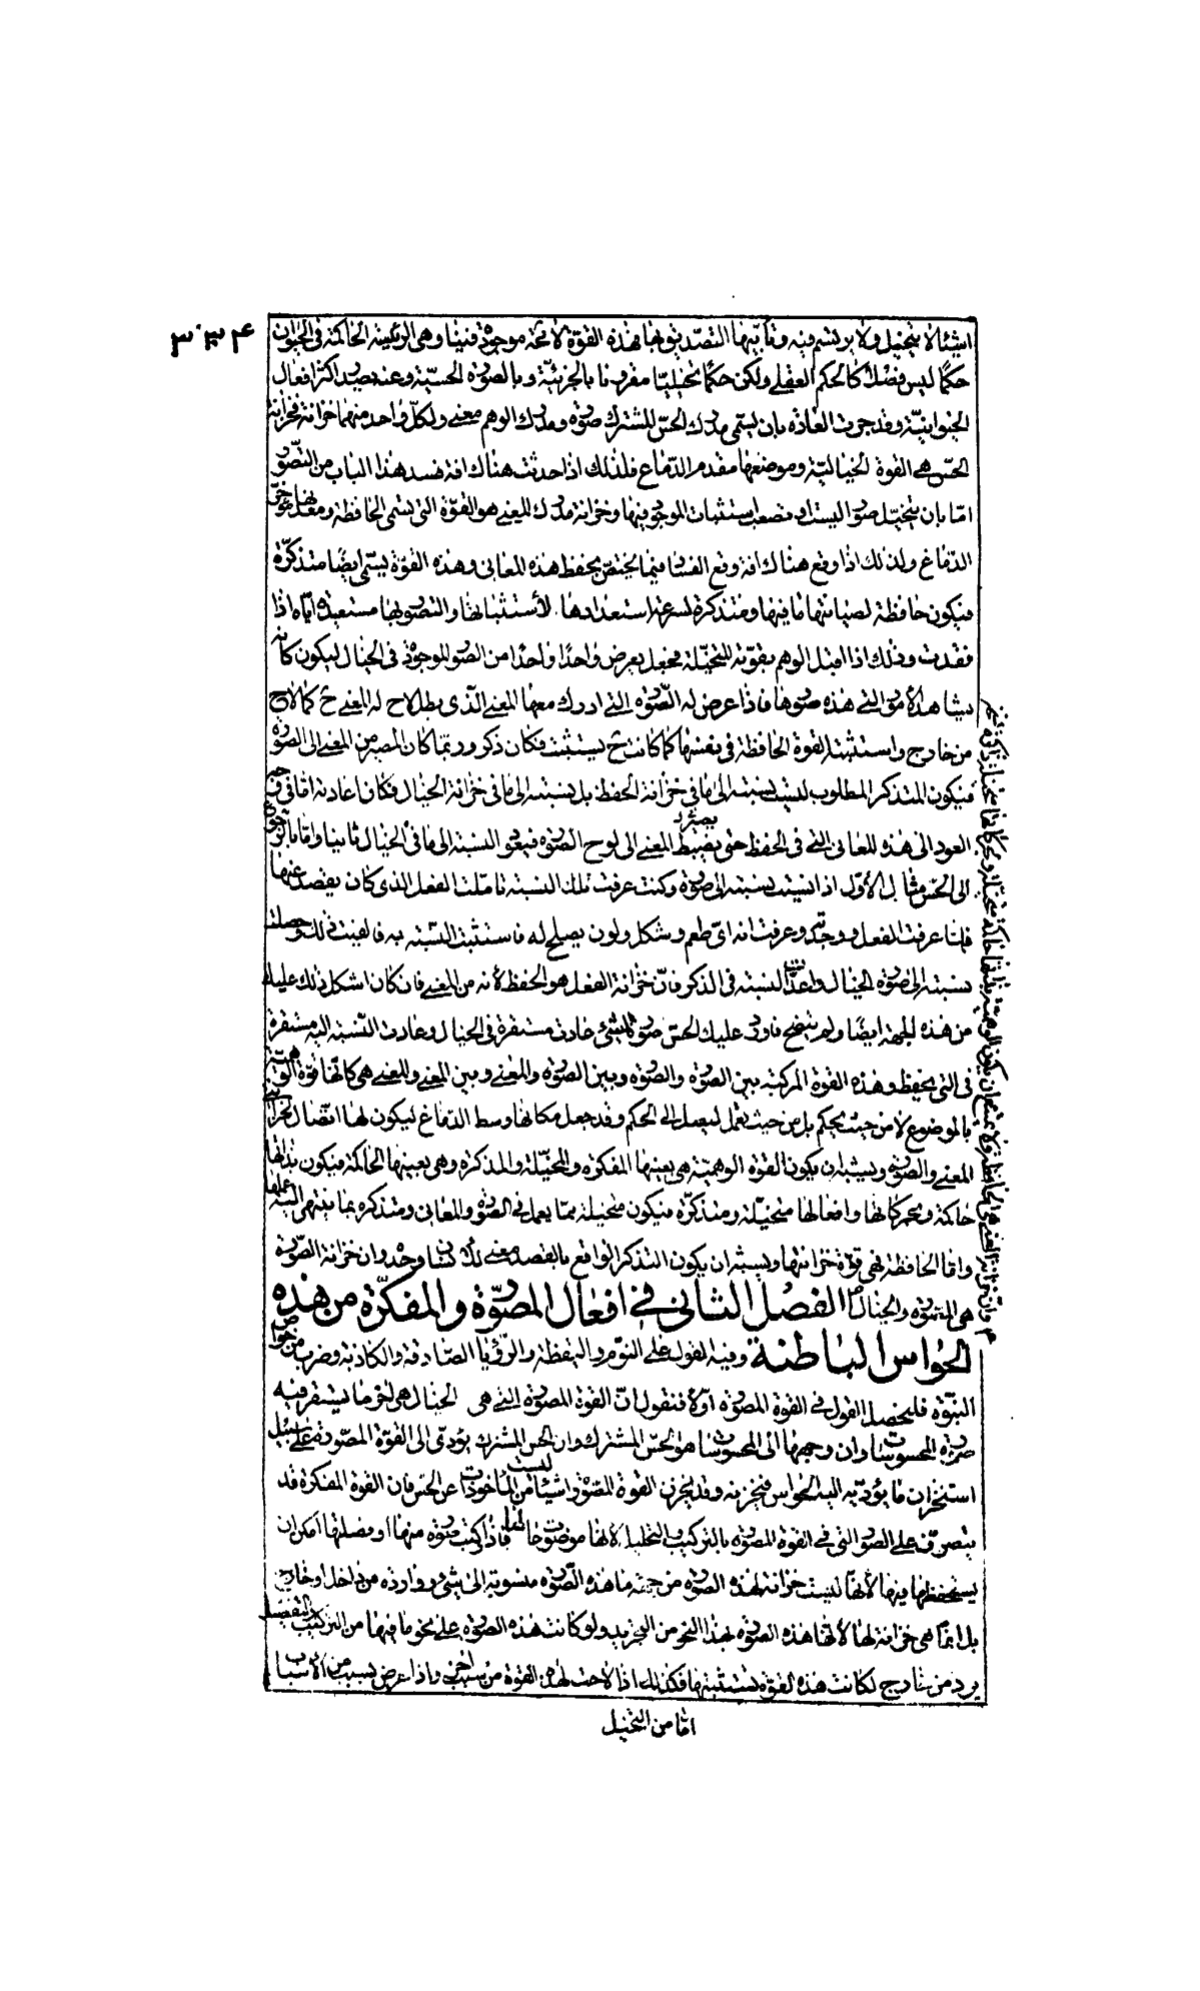 ۳۳۴
اشيئا لا يتخيل ولا يرتسم فيه وتأبيها التصديق بها فهذه القوة لا محة موجودة فينا وهى الرئيسة الحاكمة فى الحيوان
حكما ليس فصلا كالحكم العقلى ولكن حكما تخيليا مقرونا بالجزئية وبالصورة الحسية وعنه يصدر اكثر افعال
الحيوانية وقد جرت العادة بان يسمى مدرك الحس المشترك صورة ومدرك الوهم معنى ولكل واحد منهما خزانة فخزانة
الحس هى القوة الخيالية وموضعها مقدم الدماغ فلذلك اذا حدثت هناك افة فسد هذا الباب من التصور
اما بان يتخيل صورا ليست او يصعب استثبات الموجود فيها وخزانة مدرك المعنى هو القوة التى تسمى الحافظة ومعدنها مؤخر
الدماغ ولذلك اذا وقع هناك افة وقع الفساد فيما يختص بحفظ هذه المعانى وهذه القوة يسمى ايضا متذكرة
فيكون حافظة لصيانتها ما فيها ومتذكرة لسرعة استعدادها لاستثباتها والتصور بها مستعيدة اياه اذا
فقدت وذلك اذا اقبل الوهم بقوته المتخيلة فجعل يعرض واحدا واحدا من الصور الموجودة فى الخيال ليكون كانه
يشاهد الامور التى هذه صورها فاذا عرض له الصورة التى ادرك معها المعنى الذى بطل لاح له المعنى ح كما لاح
من خارج واستثبته القوة الحافظة فى نفسها كما كانت ح يستثبت فكان ذكر وربما كان المصير من المعنى الى الصورة
فيكون المتذكر المطلوب ليست نسبته الى ما فى خزانة الحفظ بل نسبته الى ما فى خزانة الخيال فكان اعادته اما فى وجه
العود الى هذه المعانى التى فى الحفظ حتى يضطر المعنى الى لوح الصورة فيعود النسبة الى ما فى الخيال ثانيا واما بالرجوع
الى الحس مثال الاول اذا نسيت نسبته الى صورة وكنت عرفت تلك النسبة تاملت الفعل الذى كان يقصد عنها
فلما عرفت الفعل ووجدته وعرفت انه اى طعم وشكل ولون يصلح له فاستثبت النسبة به فالفيت ذلك وحصلت
نسبته الى صورة الخيال واعدت النسبة فى الذكر فان خزانة الفعل هو الحفظ لانه من المعنى فان كان اشكل ذلك عليك
من هذه الجهة ايضا ولم يتضح فاورد عليك الحس صورة الشىء عادت مستقرة فى الخيال وعادت النسبة اليه مستقرة
فى التى يحفظ وهذه القوة المركبة بين الصورة والصورة وبين الصورة والمعنى وبين المعنى والمعنى هى كانها قوة الوهمية
بالموضوع لا من حيث يحكم بل من حيث يعمل ليصل الى الحكم وقد جعل مكانها وسط الدماغ ليكون لها اتصال بخزانتى
المعنى والصورة ويشبه ان يكون القوة الوهمية هى بعينها المفكرة والمتخيلة والمذكرة وهى بعينها الحاكمة فيكون بذاتها
حاكمة وبحركاتها وافعالها متخيلة ومتذكرة فيكون متخيلة بما يعمل فى الصورة والمعانى ومتذكرة بما ينتهى اليه عملها
واما الحافظة فهى قوة خزانتها ويشبه ان يكون التذكر الواقع بالقصد معنى للانسان وحده وان خزانة الصورة
هى المصورة والخيال الفصل الثانى فى افعال المصورة والمفكرة من هذه
الحواس الباطنة وفيه القول على النوم واليقظة والرؤيا الصادقة والكاذبة وضرب من خواص
النبوة فليحصل القول فى القوة المصورة اولا فنقول ان القوة المصورة التى هى الخيال هى اخر ما يستقر فيه
صورة المحسوسات وان وجهها الى المحسوسات هو الحس المشترك وان الحس المشترك يؤدى الى القوة المصورة على سبيل
استخزان ما يؤديه اليه الحواس فتخزنه وقد يخزن القوة المصورة اشياء ليست من الماخوذات عن الحس فان القوة المفكرة قد
يتصرف على الصور التى فى القوة المصورة بالتركيب والتحليل لانها موضوعات لها فاذا ركبت صورة منها او فصلتها امكن ان
يستحفظها فيها لانها ليست خزانة لهذه الصورة من جهة ما هذه الصورة منسوبة الى شىء وواردة من داخل او خارج
بل انما هى خزانة لها لانها هذه الصورة بهذا النحو من التجريد ولو كانت هذه الصورة على نحو ما فيها من التركيب والتفصيل
يرد من خارج لكانت هذه القوة يستثبتها فكذلك اذا لاحت لهذه القوة من سبب اخر واذا عرض بسبب من الاسباب
اما من التخيل